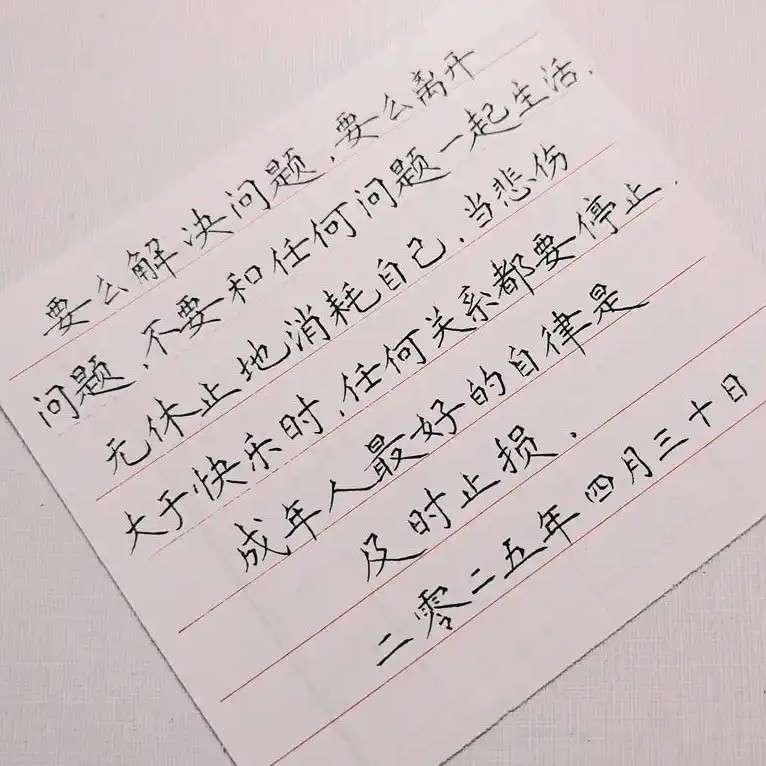 要么解决问题,要么离开
问题,不要和任何问题一起生活.
无休止地消耗自己.当悲伤
大于快乐时,任何关系都要停止.
成年人最好的自律是
及时止损.
二零二五年四月三十日